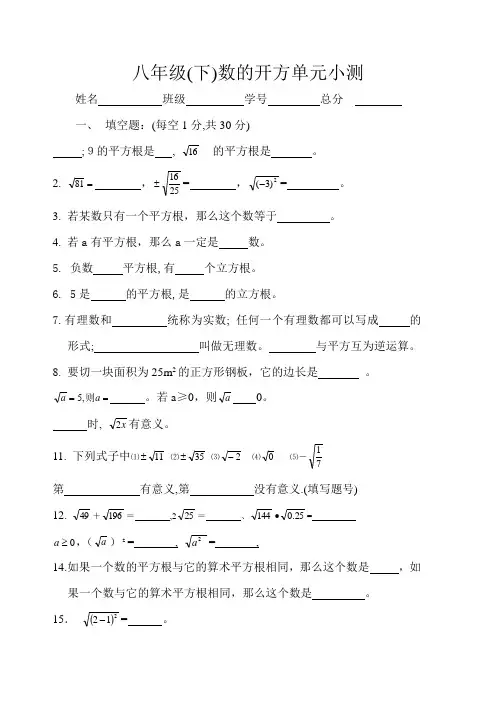 八年级(下)数的开方单元小测
姓名________ 班级________ 学号________ 总分 ________
一、 填空题：(每空1分,共30分)
____;９的平方根是__, √16 的平方根是______。
2. √81 =______，±√(16/25)=______，√(-3)²=______。
3. 若某数只有一个平方根，那么这个数等于______。
4. 若a有平方根，那么a一定是____数。
5. 负数____平方根,有____个立方根。
6. 5是____的平方根,是____的立方根。
7.有理数和______统称为实数; 任何一个有理数都可以写成____的
形式;____________叫做无理数。______与平方互为逆运算。
8. 要切一块面积为25m²的正方形钢板，它的边长是______ 。
√a = 5,则a = ____。若a≥0，则√a ____0。
____时, √2x有意义。
11. 下列式子中⑴±√11 ⑵±√35 ⑶√-2 ⑷√0 ⑸－√(1/7)
第________有意义,第________没有意义.(填写题号)
12. √49＋√196＝______,2√25＝______、√144•√0.25=______
a ≥ 0，（√a）²=______, √a² =______,
14.如果一个数的平方根与它的算术平方根相同，那么这个数是____，如
果一个数与它的算术平方根相同，那么这个数是______。
15． √(2-1)² =____。